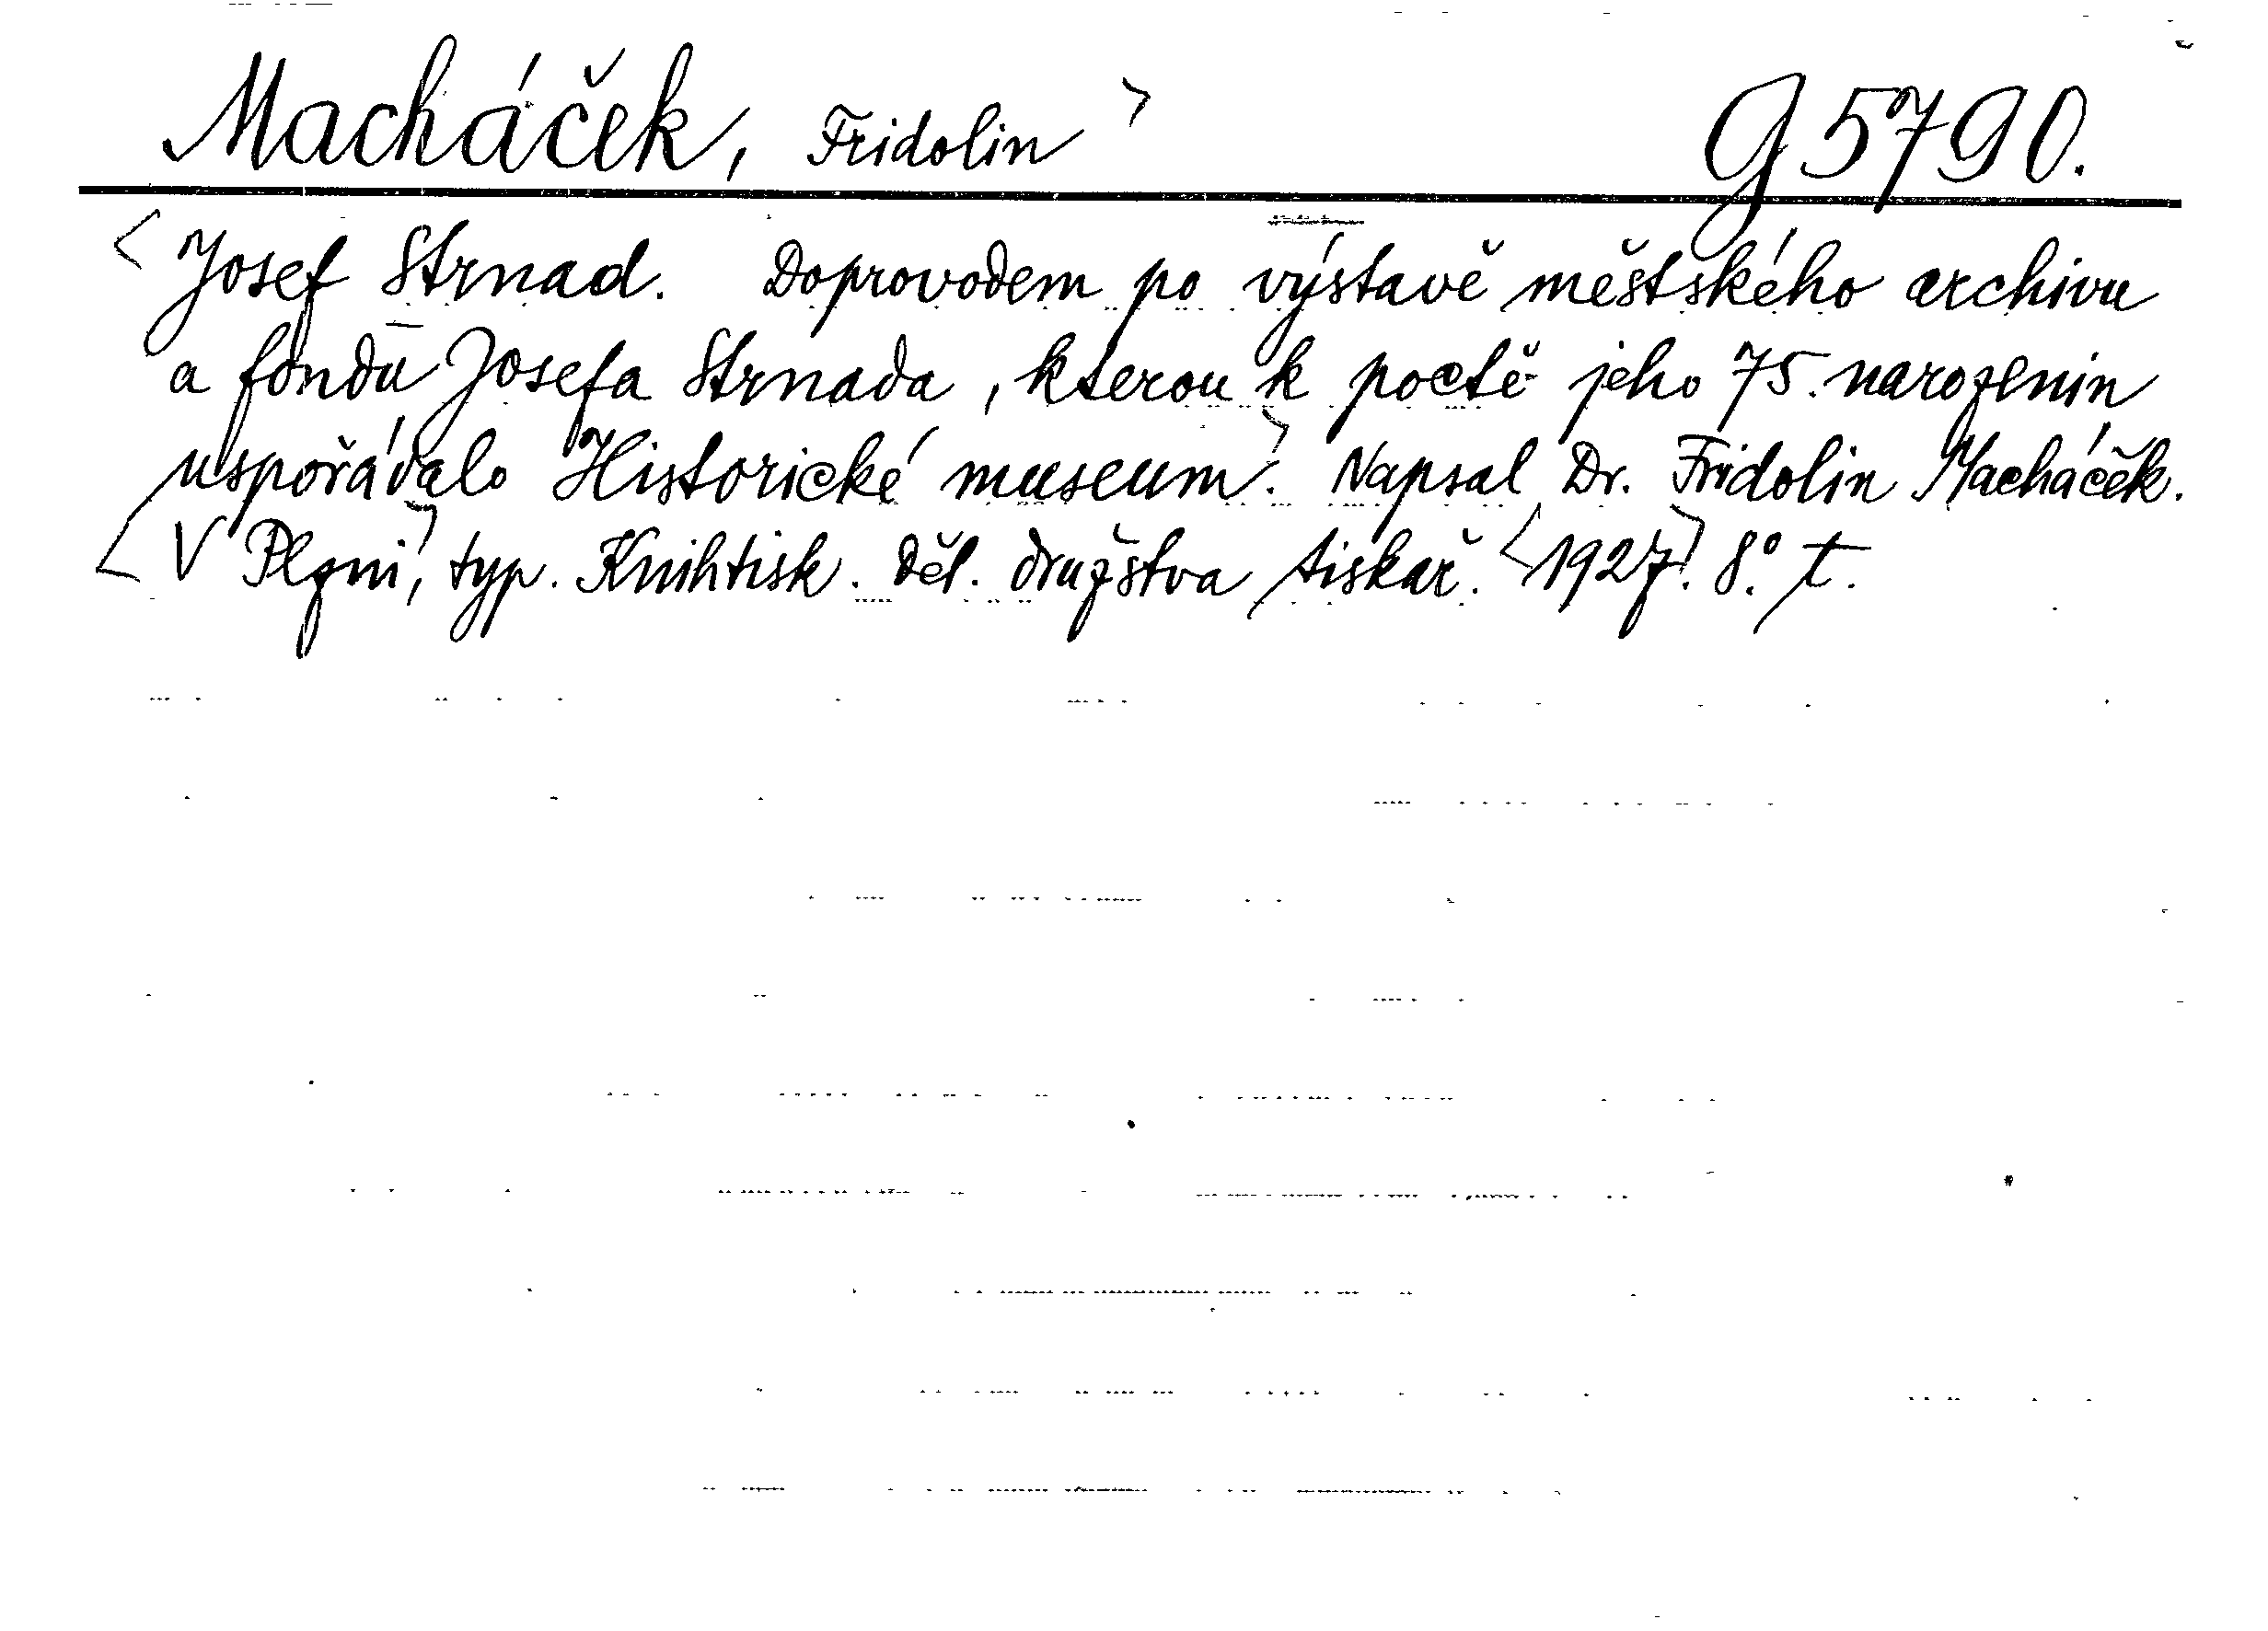 Macháček, Fridolin G 5790.
Josef Strnad. Doprovodem po výstavě městského archivu
a fondu Josefa Strnada, kterou k poctě jeho 75. narozenin
uspořádalo Historické museum. Napsal Dr. Fridolin Macháček.
V Plzni, typ. Knihtisk. děl. družstva tiskař. <1927>. 8°. t.